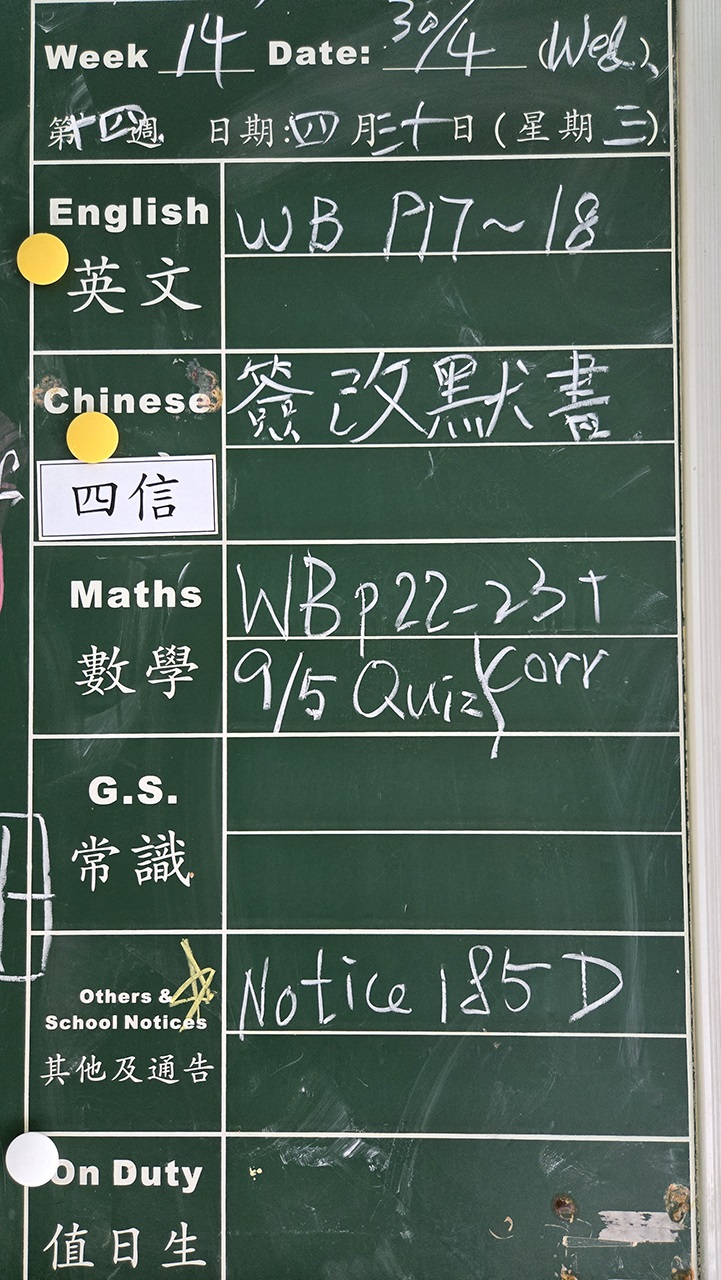 Week 14 Date: 30/4 (Wed)
第十四週 日期:四月三十日(星期三)
English
英文
WB P17~18
Chinese
四信
簽改默書
Maths
數學
WB p22-23 +
9/5 Quiz corr
G.S.
常識
Others &
School Notices
其他及通告
Notice 185D
On Duty
值日生